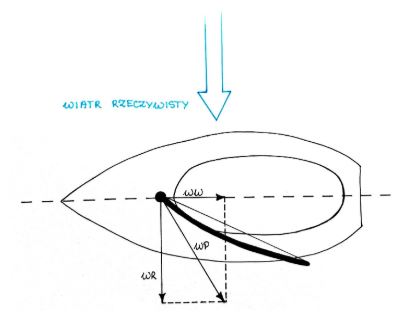 WIATR RZECZYWISTY
WW
WP
WR